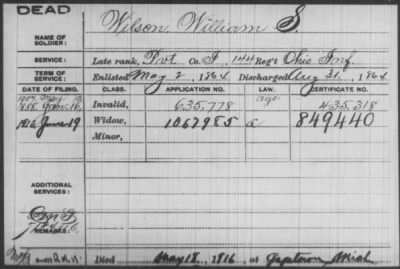 DEAD
Wilson, William S.
NAME OF SOLDIER:
SERVICE: Late rank, Pvt Co. I, 144 Reg't Ohio Inf.
TERM OF SERVICE: Enlisted May 2, 1864 Discharged Aug 31, 1864
DATE OF FILING. CLASS. APPLICATION NO. LAW. CERTIFICATE NO.
age
Invalid, 635,778 435,318
1916 June 19 Widow, 1067985 a 849440
Minor,
ADDITIONAL SERVICES:
REMARKS:
Died May 18, 1916, at Mich